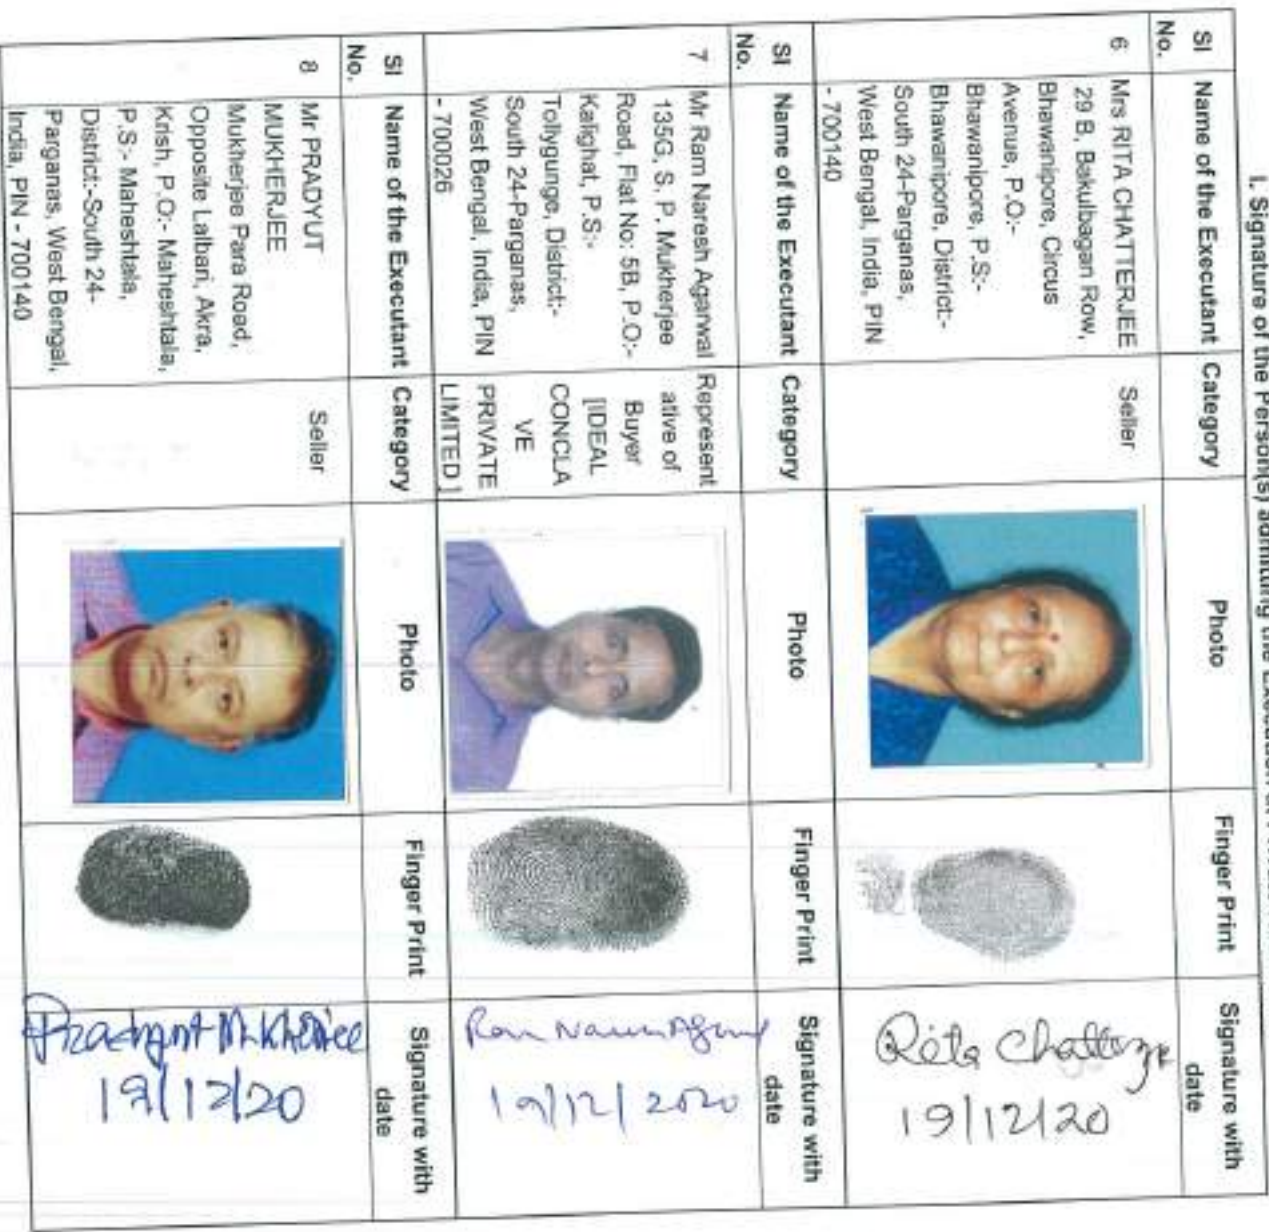 I. Signature of the Person(s) admitting the Execution at
Sl No. Name of the Executant Category Photo Finger Print Signature with date
6 Mrs RITA CHATTERJEE Seller
29 B, Bakulbagan Row,
Bhawanipore, Circus
Avenue, P.O:-
Bhawanipore, P.S:-
Bhawanipore, District:-
South 24-Parganas,
West Bengal, India, PIN
- 700140
Rita Chatterjee
19/12/20
Sl No. Name of the Executant Category Photo Finger Print Signature with date
7 Mr Ram Naresh Agarwal Represent
135G, S. P. Mukherjee ative of
Road, Flat No: 5B, P.O:- Buyer
Kalighat, P.S:- [IDEAL
Tollygunge, District:- CONCLA
South 24-Parganas, VE
West Bengal, India, PIN PRIVATE
- 700026 LIMITED ]
Ram Naresh Agarwal
19/12/2020
Sl No. Name of the Executant Category Photo Finger Print Signature with date
8 Mr PRADYUT Seller
MUKHERJEE
Mukherjee Para Road,
Opposite Lalbari, Akra,
Krish, P.O:- Maheshtala,
P.S:- Maheshtala,
District:-South 24-
Parganas, West Bengal,
India, PIN - 700140
Pradyut Mukherjee
19/12/20